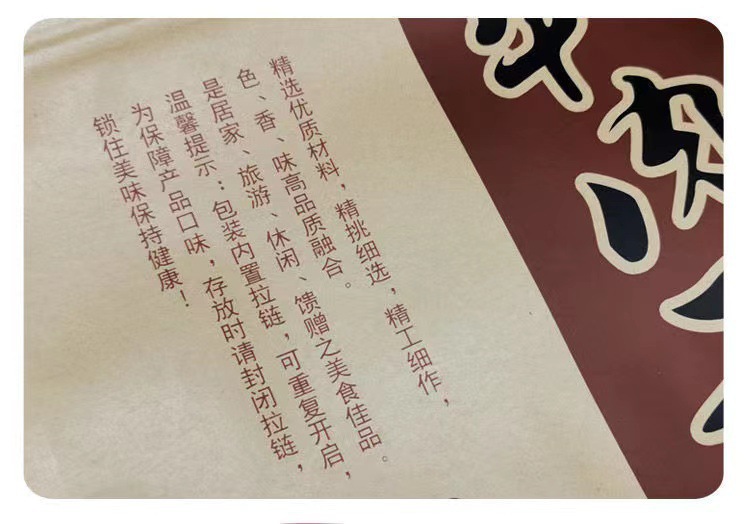 精选优质材料，精挑细选，精工细作，
色、香、味高品质融合。
是居家、旅游、休闲、馈赠之美食佳品。
温馨提示：包装内置拉链，可重复开启，
为保障产品口味，存放时请封闭拉链，
锁住美味保持健康！